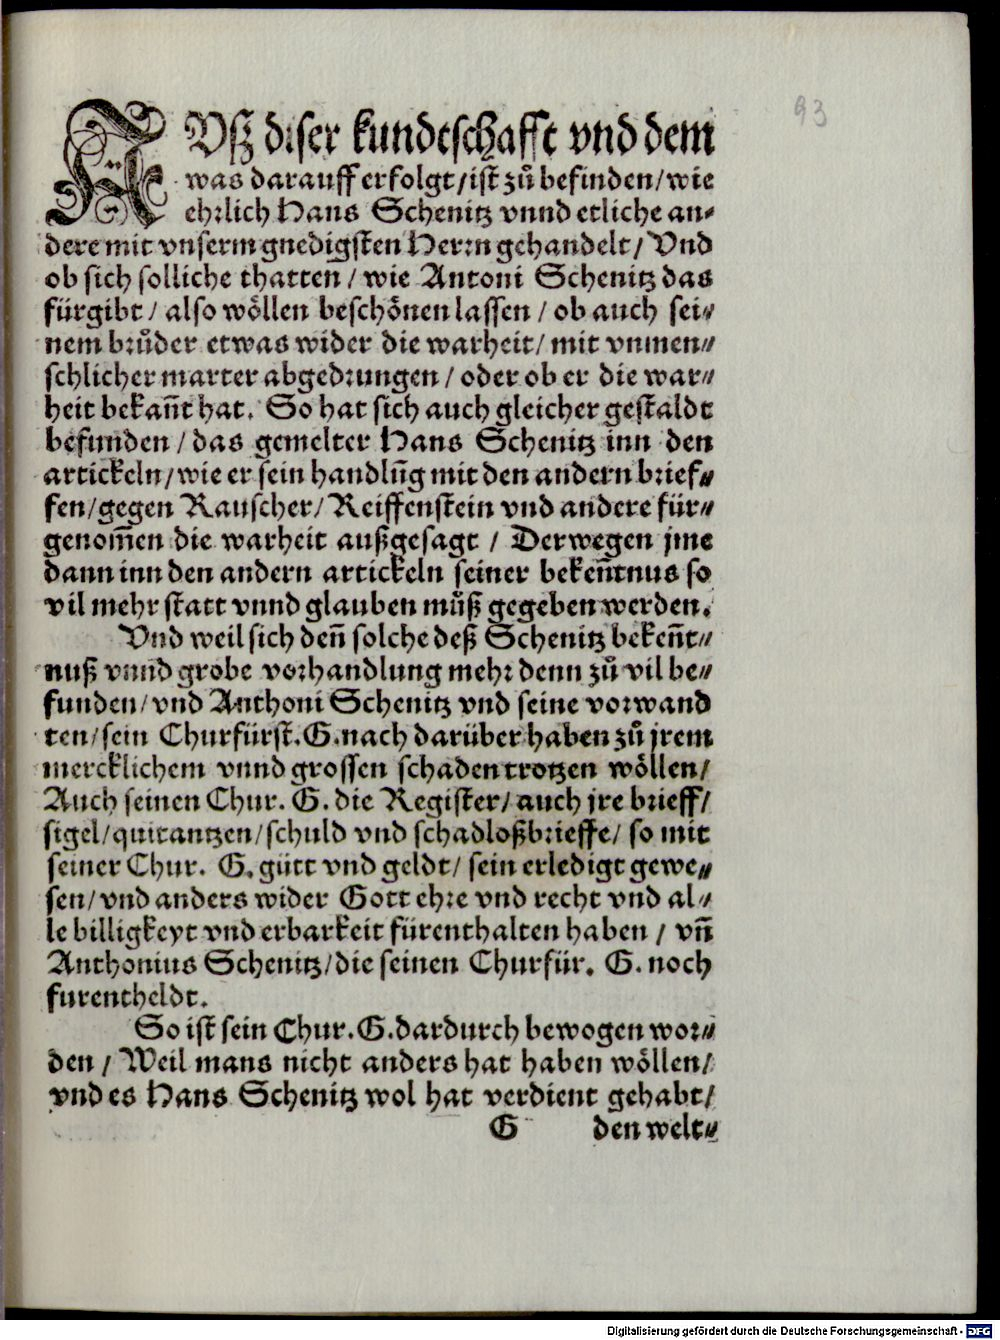 93
AVß diser kundtschafft vnd dem
was darauff erfolgt/ist zů befinden/wie
ehrlich Hans Schenitz vnnd etliche an⸗
dere mit vnserm gnedigsten Herrn gehandelt/ Vnd
ob sich solliche thatten / wie Antoni Schenitz das
fürgibt / also wöllen beschönen lassen / ob auch sei⸗
nem brůder etwas wider die warheit/ mit vnmen⸗
schlicher marter abgedrungen / oder ob er die war⸗
heit bekañt hat. So hat sich auch gleicher gestaldt
befunden / das gemelter Hans Schenitz inn den
artickeln/wie er sein handlūg mit den andern brief⸗
fen/gegen Rauscher/ Reiffenstein vnd andere für⸗
genom̄en die warheit außgesagt / Derwegen jme
dann inn den andern artickeln seiner bekeñtnus so
vil mehr statt vnnd glauben můß gegeben werden.
Vnd weil sich deñ solche deß Schenitz bekeñt⸗
nuß vnnd grobe vorhandlung mehr denn zů vil be⸗
funden/vnd Anthoni Schenitz vnd seine vorwand
ten/sein Churfürst.G.nach darüber haben zů jrem
mercklichem vnnd grossen schaden trotzen wöllen/
Auch seinen Chur. G. die Register/ auch jre brieff/
sigel/quitantzen/schuld vnd schadloßbrieffe/ so mit
seiner Chur. G. gütt vnd geldt/ sein erledigt gewe⸗
sen/vnd anders wider Gott ehre vnd recht vnd al⸗
le billigkeyt vnd erbarkeit fürenthalten haben / vñ
Anthonius Schenitz/die seinen Churfür. G. noch
furentheldt.
So ist sein Chur.G.dardurch bewogen wor⸗
den / Weil mans nicht anders hat haben wöllen/
vnd es Hans Schenitz wol hat verdient gehabt/
G den welt⸗
Digitalisierung gefördert durch die Deutsche Forschungsgemeinschaft - DFG